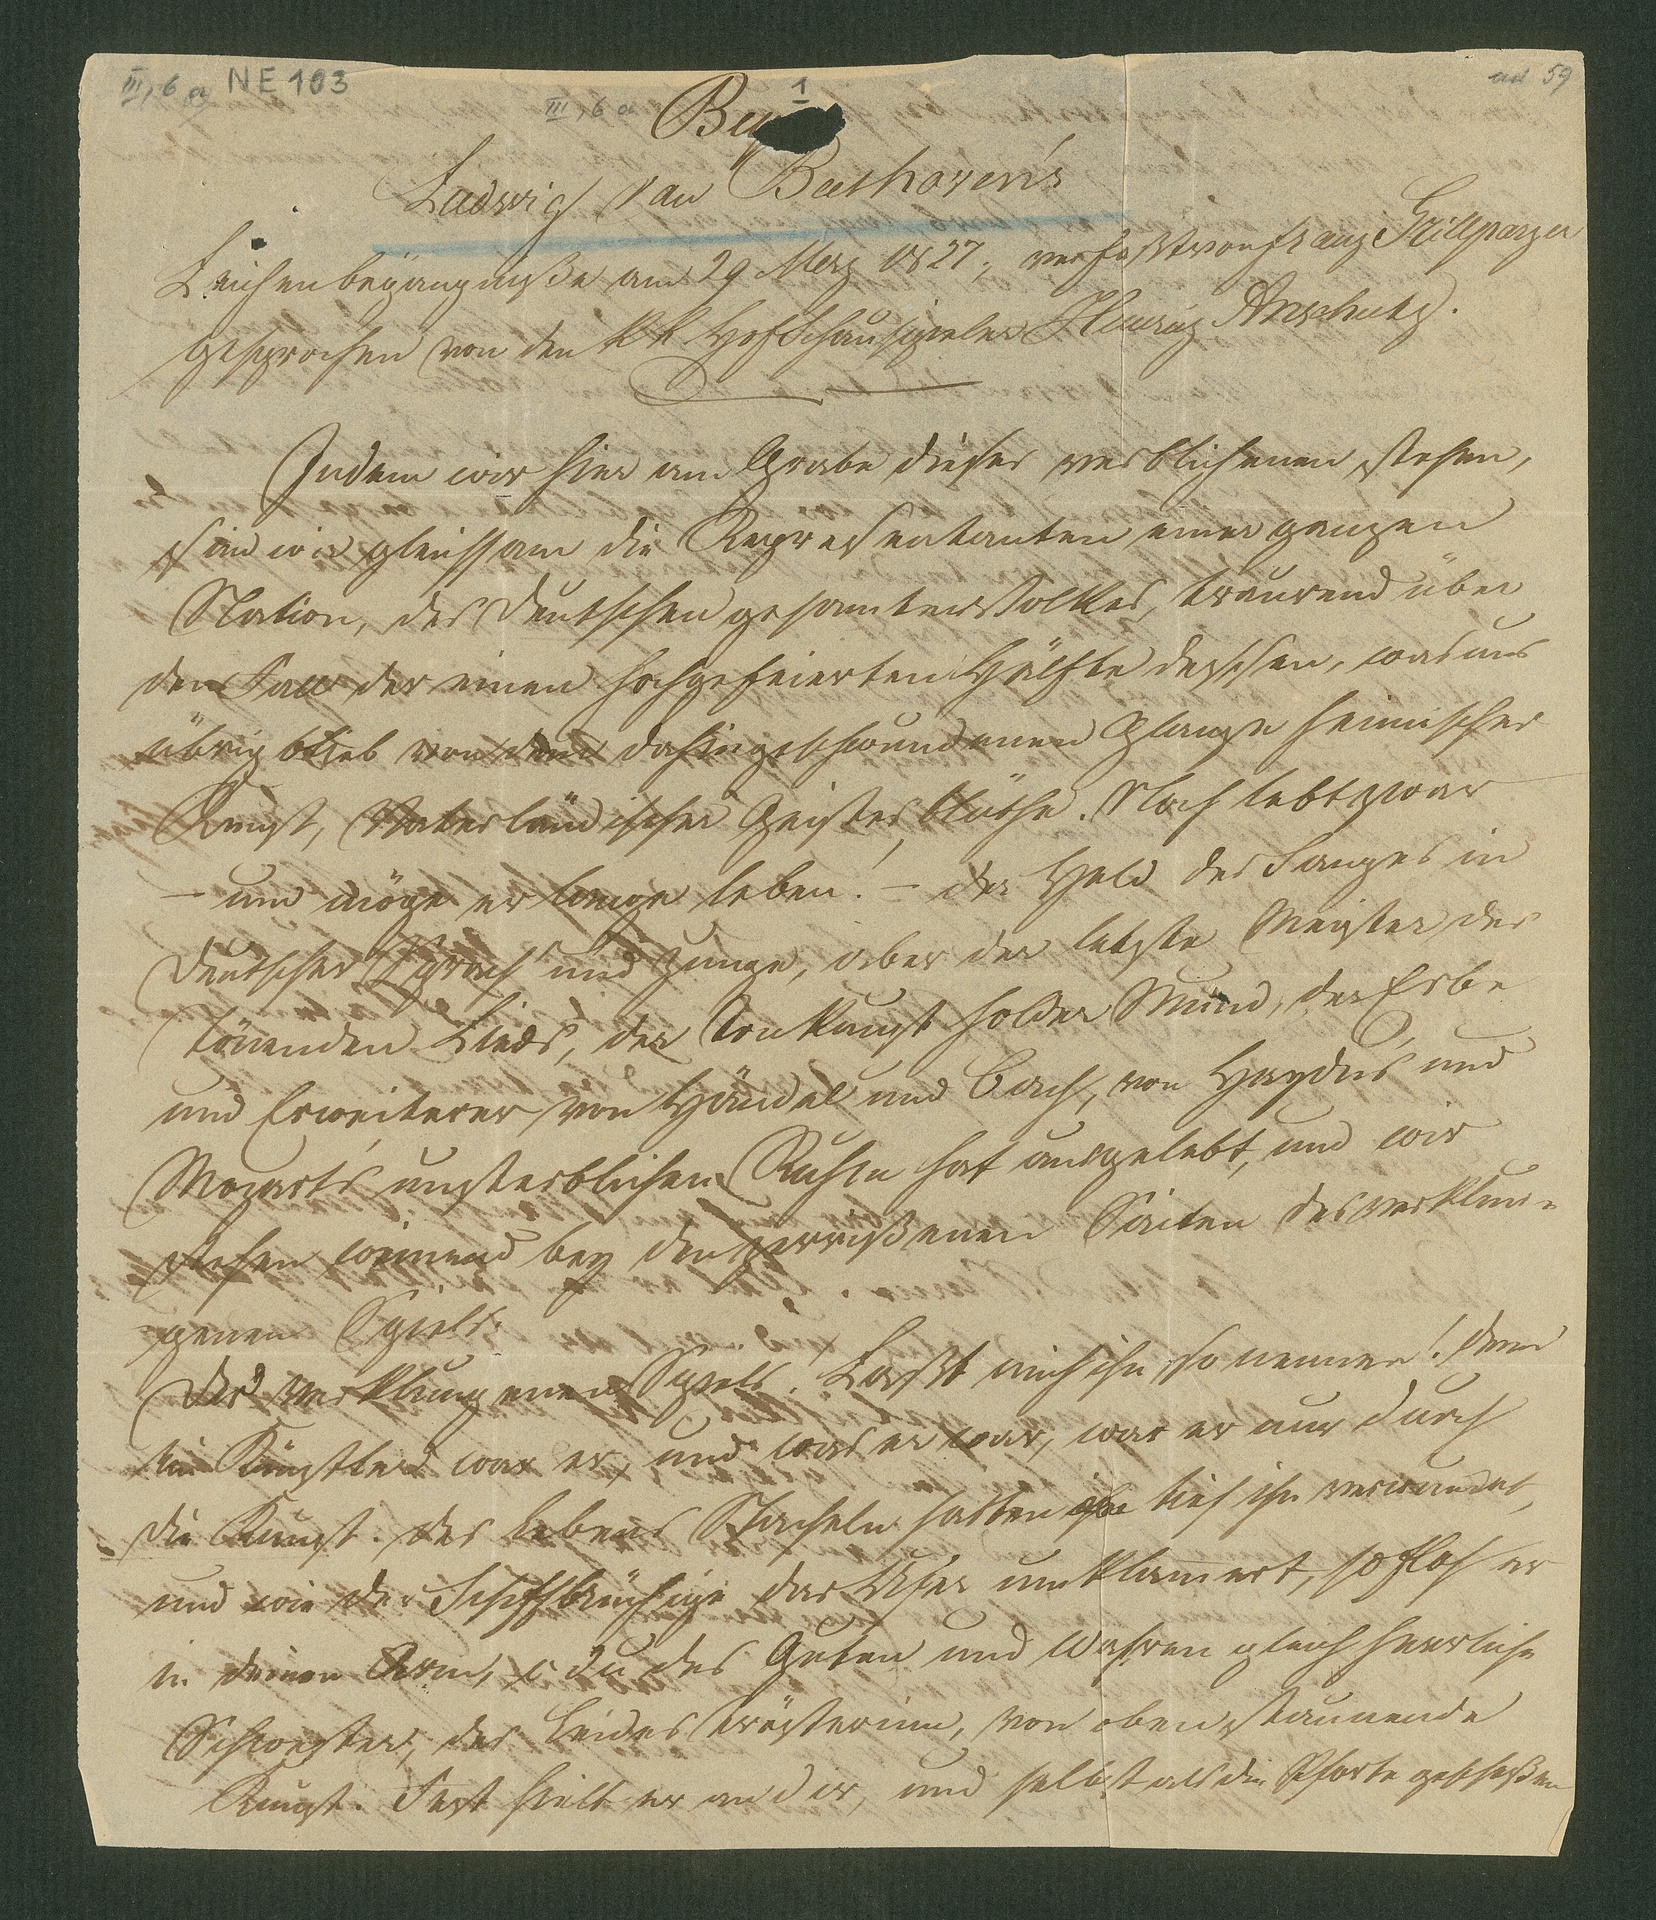 III, 6 a NE 103
III, 6 a
1
ad 59
Bey
Ludwig van Beethoven's
Leichenbegängniße am 29 Merz 1827, verfaßt von Franz Grillparzer
gesprochen von den kk Hofschauspieler Heinrich Anschutz.
Indem wir hier am Grabe dieses verblichenen stehen,
sind wir gleichsam die Representanten einer ganzen
Nation, des deutschen gesamten Volkes, traurend über
den Fall der einen hochgefeierten Hälfte dessen, was uns
übrig blieb von dem dahingeschwundenen Glanze heimischer
Kunst, Vaterländischer Geistes Blüthe. Noch lebt zwar
– und möge er lange leben! – der Held des Sanges in
deutscher Sprach und Zunge, aber der letzte Meister des
tönenden Lieds, der Tonkunst holder Mund, der Erbe
und Erweiterer von Händel und Bach, von Haydn's und
Mozart's unsterblichen Ruhm hat ausgelebt, und wir
stehen weinend bey den zerrißenen Saiten des verklun-
genen Spiels.
Des verklungenen Spiels! Laßt mich ihn so nennen! denn
ein Künstler war er, und was er war, war er nur durch
die Kunst. Des Lebens Stacheln hatten tief ihn verwundet,
und wie der Schiffbrüchige das Ufer umklammert, so floh er
in deinen Arm, o du des Guten und Wahren gleich herrliche
Schwester, des Leides Trösterinn, von oben stammende
Kunst. Fest hielt er an dir, und selbst als die Pforte geschloßen